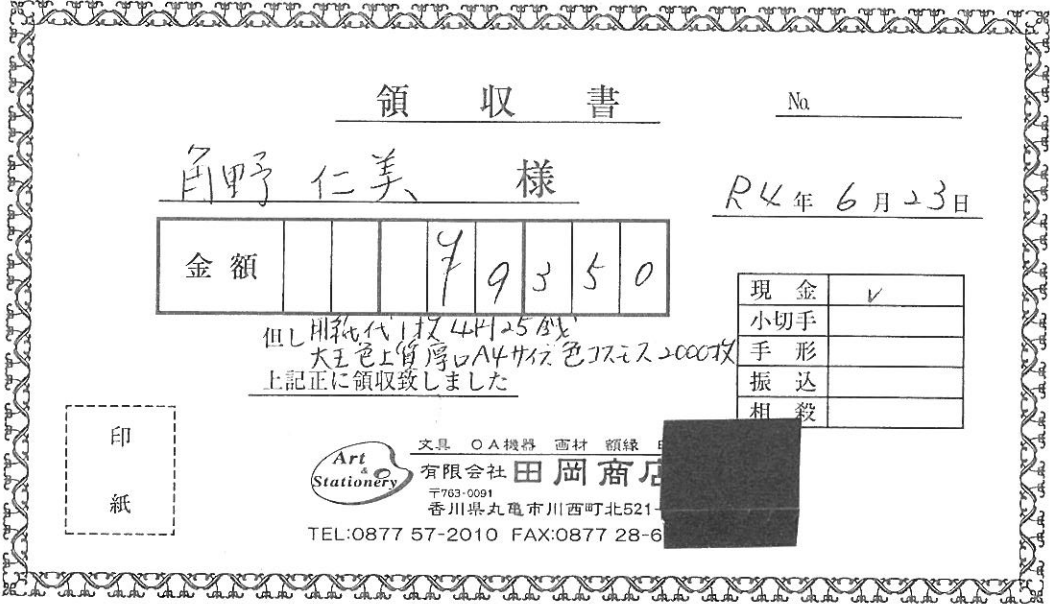 領収書
No.
角野 仁美 様
R4年 6月 23日
金額 ¥9350
但し 用紙代 1枚 4円25銭
大王色上質厚口A4サイズ 色コスモス 2000枚
上記正に領収致しました
現金 ✓
小切手
手形
振込
相殺
印紙
Art & Stationery
文具 OA機器 画材 額縁
有限会社 田岡商店
〒763-0091
香川県丸亀市川西町北521-
TEL:0877 57-2010 FAX:0877 28-6